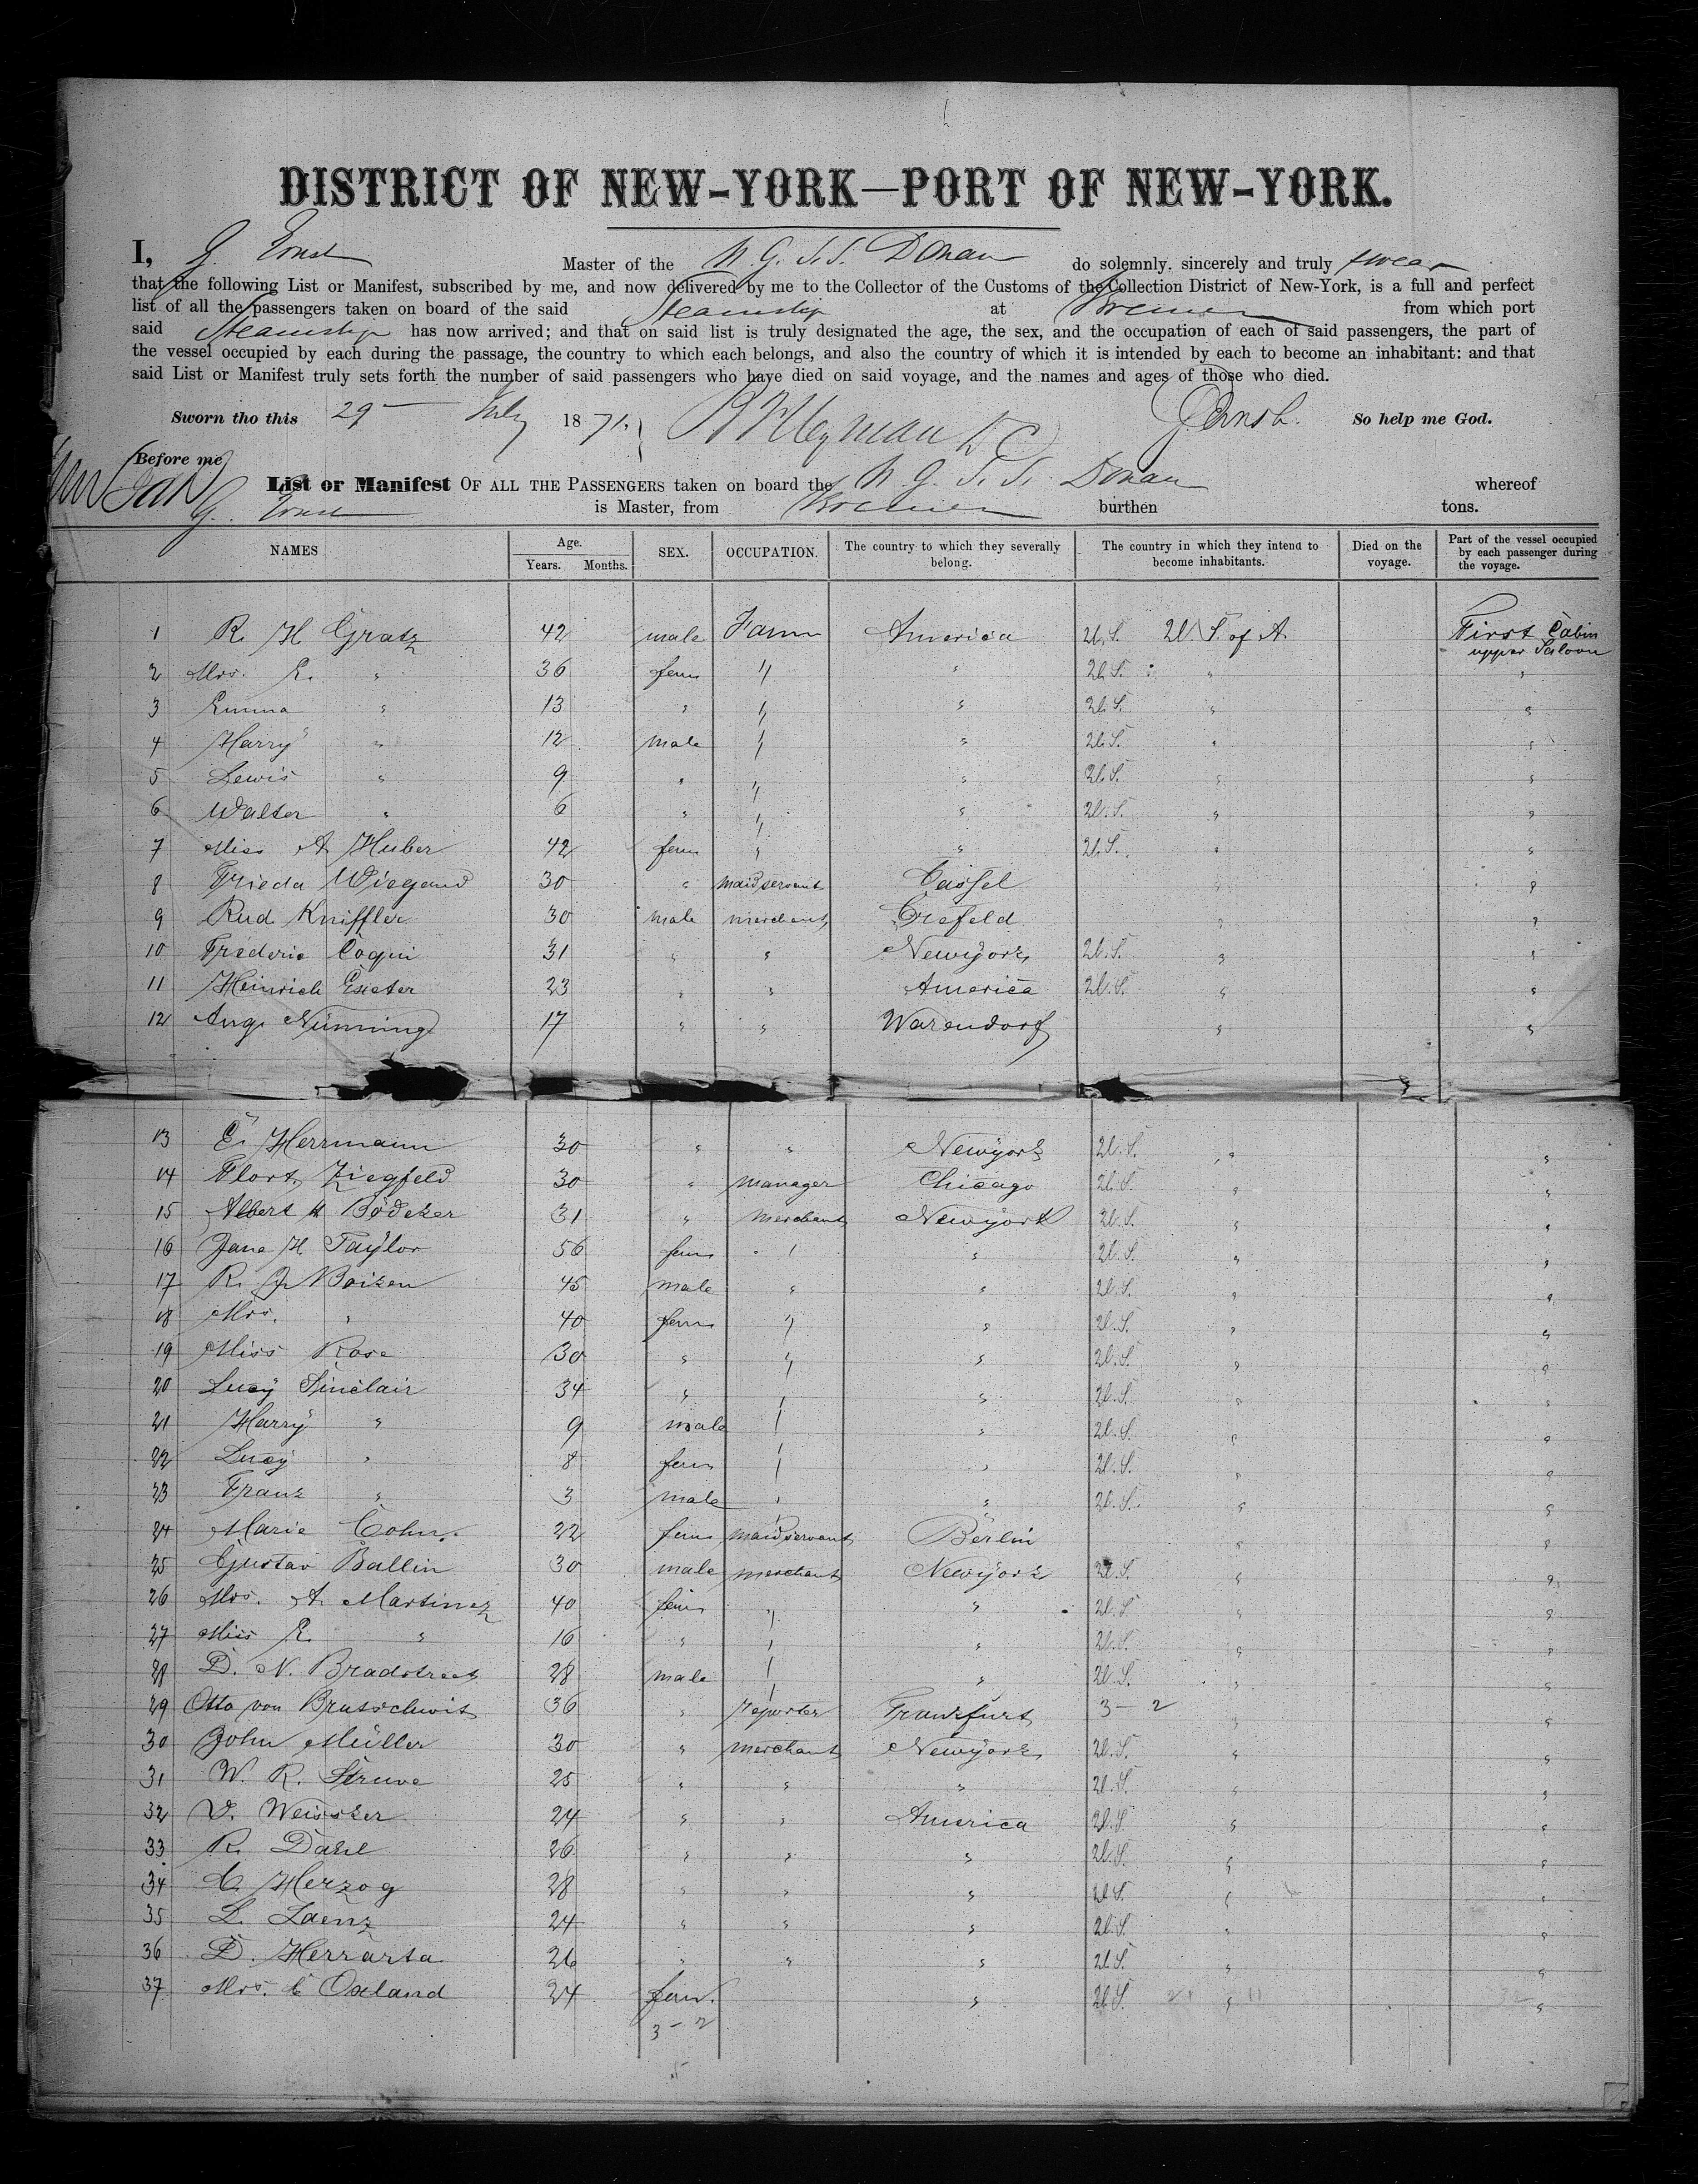 DISTRICT OF NEW-YORK—PORT OF NEW-YORK.
I, G. Ernst Master of the N. G. S. S. Donau do solemnly. sincerely and truly swear
that the following List or Manifest, subscribed by me, and now delivered by me to the Collector of the Customs of the Collection District of New-York, is a full and perfect
list of all the passengers taken on board of the said Steamship at Bremen from which port
said Steamship has now arrived; and that on said list is truly designated the age, the sex, and the occupation of each of said passengers, the part of
the vessel occupied by each during the passage, the country to which each belongs, and also the country of which it is intended by each to become an inhabitant: and that
said List or Manifest truly sets forth the number of said passengers who have died on said voyage, and the names and ages of those who died.
Sworn tho this 29 July 1871. G. Ernst. So help me God.
Before me
List or Manifest OF ALL THE PASSENGERS taken on board the N. G. S. S. Donau whereof
G. Ernst is Master, from Bremen burthen tons.
NAMES Age. Years. Months. SEX. OCCUPATION. The country to which they severally belong. The country in which they intend to become inhabitants. Died on the voyage. Part of the vessel occupied by each passenger during the voyage.
1 R. H Gratz 42 male Farm America U.S. U. S. of A. First Cabin upper Saloon
2 Mrs. E. " 36 fem " " U.S. " "
3 Emma " 13 " " " U.S. " "
4 Harry " 12 male " " U.S. " "
5 Lewis " 9 " " " U.S. " "
6 Walter " 6 " " " U.S. " "
7 Miss A Huber 42 fem " " U.S. " "
8 Frieda Wiegand 30 " maidservant Cassel " "
9 Rud. Kniffler 30 male merchant Crefeld " "
10 Frederic Coqui 31 " " Newyork U.S. " "
11 Heinrich Exeter 23 " " America U.S. " "
12 Aug. Nünning 17 " " Warendorf " "
13 E. Herrmann 30 " " Newyork U.S. " "
14 Flort. Ziegfeld 30 " manager Chicago U.S. " "
15 Albert H Bödeker 31 " merchant Newyork U.S. " "
16 Jane H Taylor 56 fem " " U.S. " "
17 R. J. Boizen 45 male " " U.S. " "
18 Mrs. " 40 fem " " U.S. " "
19 Miss Rose 30 " " " U.S. " "
20 Lucy Sinclair 34 " " " U.S. " "
21 Harry " 9 male " " U.S. " "
22 Lucy " 8 fem " " U.S. " "
23 Franz " 3 male " " U.S. " "
24 Marie Cohn. 22 fem maidservant Berlin " "
25 Gustav Ballin 30 male merchant Newyork U.S. " "
26 Mrs. A. Martinez 40 fem " " U.S. " "
27 Miss E. " 16 " " " U.S. " "
28 D. N. Bradstreet 28 male " " U.S. " "
29 Otto von 36 " reporter Frankfurt 3 – 2 " "
30 John Müller 30 " merchant Newyork U.S. " "
31 W. R. Struve 25 " " " U.S. " "
32 V. Weissker 24 " " America U.S. " "
33 R. 26 " " " U.S. " "
34 C. Herzog 28 " " " U.S. " "
35 L. Laenz 24 " " " U.S. " "
36 D. Herrarta 26 " " " U.S. " "
37 Mrs. C Oxland 24 fem. " U.S. " "
3 – 2